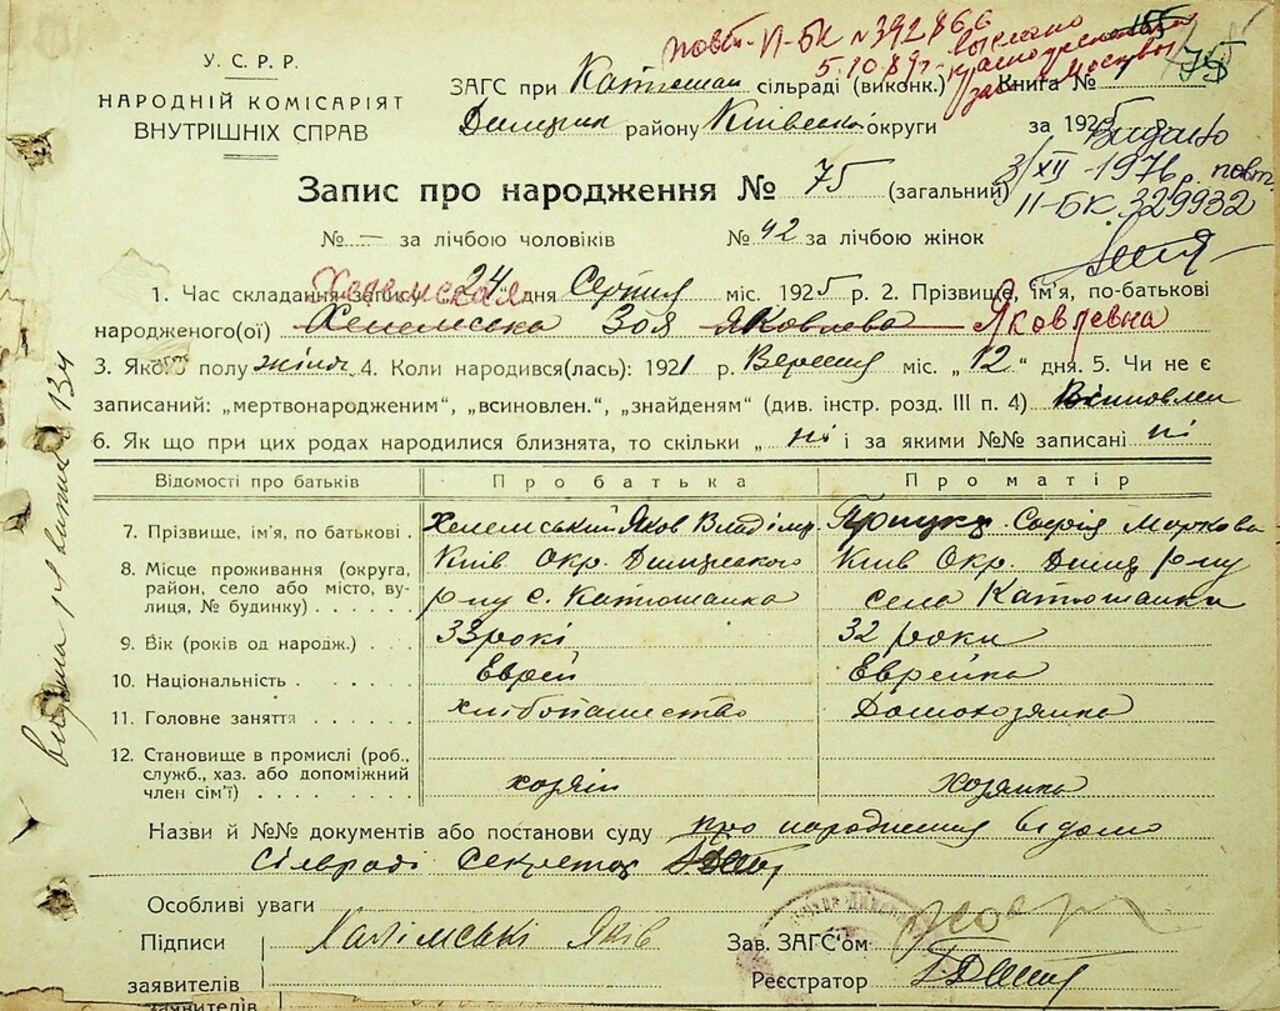 У. С. Р. Р.
НАРОДНІЙ КОМІСАРІЯТ
ВНУТРІШНІХ СПРАВ
повт. II-БК №392866
5.10.89г. выслано
Москвы
155
75
ЗАГС при Катюжан сільраді (виконк.) Книга № 1
Димерск району Київської округи за 1925 р.
Видано
3/XII-1976р. повт.
II-БК 329932
Запис про народження № 75 (загальний)
№ — за лічбою чоловіків № 42 за лічбою жінок
Хелемская
1. Час складання запису „24“ дня Серпня міс. 1925 р. 2. Прізвище, ім'я, по-батькові
народженого(ої) Хелемська Зоя Яковлева Яковлевна
3. Якого полу жіноч. 4. Коли народився(лась): 1921 р. Вересня міс. „12“ дня. 5. Чи не є
записаний: „мертвонародженим“, „всиновлен.“, „знайденям“ (див. інстр. розд. III п. 4) Вiновлен
6. Як що при цих родах народилися близнята, то скільки „ ні і за якими №№ записані ні
Відомості про батьків Про батька Про матір
7. Прізвище, ім'я, по батькові . Хелемський Яков Владімір. Софія Маркова
8. Місце проживання (округа, район, село або місто, вулиця, № будинку) . . . . . . Київ Окр. Димерського р-ну с. Катюжанка Київ Окр. Димер р-ну село Катюжанки
9. Вік (років од народж.) . . . 33 рокі 32 роки
10. Національність . . . . . . Еврей Еврейка
11. Головне заняття . . . . . . хлібопашество Домохозяйка
12. Становище в промислі (роб., служб., хаз. або допоміжний член сім'ї) . . . . . . . . хозяін хозяйка
Назви й №№ документів або постанови суду про народження відомо
сільраді Секретар
Особливі уваги
Підписи Халімські Яків Зав. ЗАГС'ом
заявителів Реєстратор
заявителів